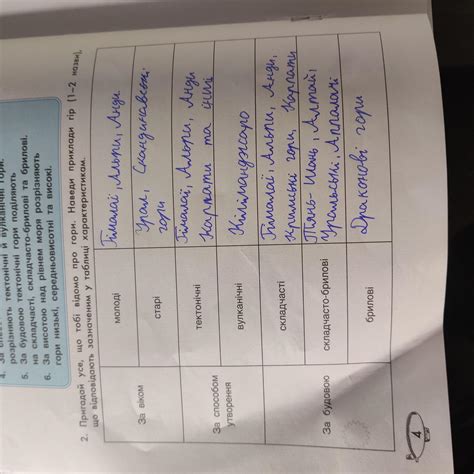 4. За
розрізняють тектонічні й вулканічні гори.
5. За будовою тектонічні гори поділяють
на складчасті, складчасто-брилові та брилові.
6. За висотою над рівнем моря розрізняють
гори низькі, середньовисотні та високі.
2. Пригадай усе, що тобі відомо про гори. Наведи приклади гір (1–2 назви),
що відповідають зазначеним у таблиці характеристикам.
За віком
молоді
Гімалаї, Альпи, Анди
старі
Урал, Скандинавські
гори
За способом
утворення
тектонічні
Гімалаї, Альпи, Анди
Карпати та інші
вулканічні
Кіліманджаро
За будовою
складчасті
Гімалаї, Альпи, Анди,
Кримські гори, Карпати
складчасто-брилові
Тянь-Шань, Алтай,
Уральські, Аппалачі
брилові
Драконові гори
4